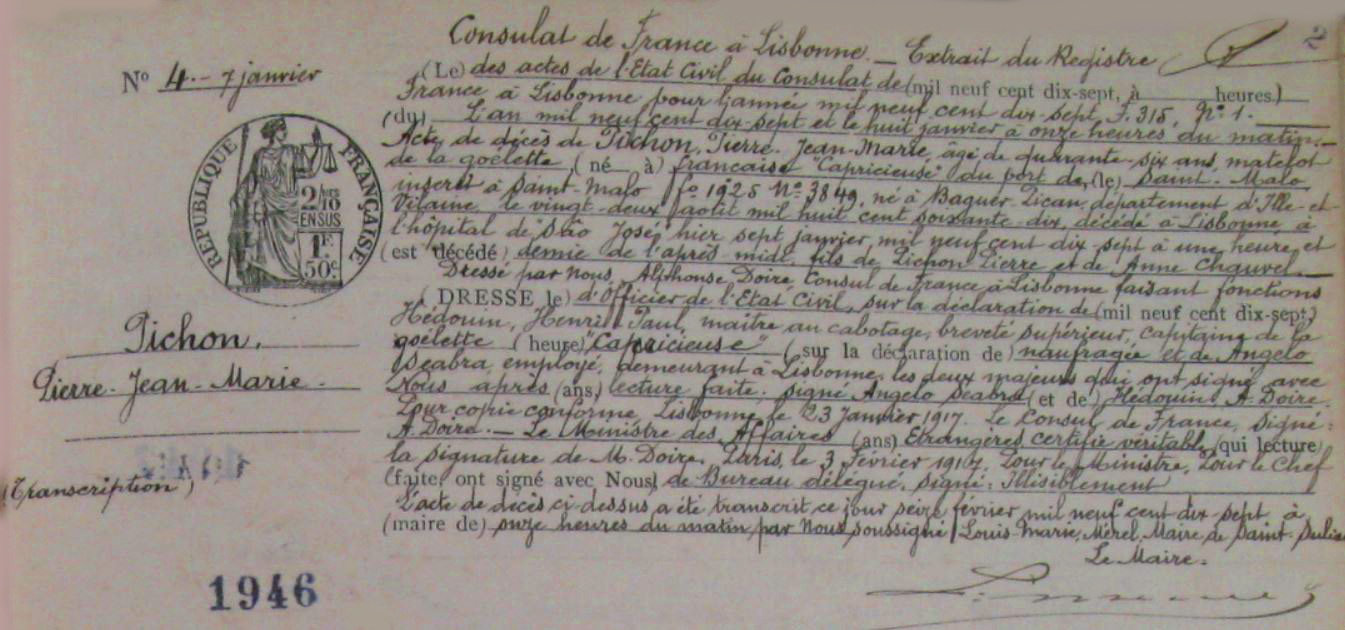 Consulat de France à Lisbonne. — Extrait du Registre
2
Nº 4. — 7 janvier
(Le) des actes de l'Etat Civil du Consulat de (mil neuf cent dix-sept, à heures)
France à Lisbonne pour l'année mil neuf cent dix-sept, F. 315, Nº 1. —
(du) L'an mil neuf cent dix-sept et le huit janvier à onze heures du matin. —
Acte de décès de Pichon, Pierre-Jean-Marie, âgé de quarante-six ans, matelot
de la goëlette (né à) française "Capricieuse" du port de (le) Saint-Malo,
inscrit à Saint-Malo fo 1925 Nº 3849, né à Baguer-Pican, département d'Ille-et-
Vilaine, le vingt-deux août mil huit cent soixante-dix, décédé à Lisbonne, à
l'hôpital de São José, hier sept janvier, mil neuf cent dix-sept à une heure et
(est décédé) demie de l'après-midi, fils de Pichon Pierre et de Anne Chauvel. —
Dressé par Nous, Alphonse Doire, Consul de France à Lisbonne faisant fonctions
(DRESSE le) d'Officier de l'Etat Civil, sur la déclaration de (mil neuf cent dix-sept)
Hédouin, Henri Paul, maître au cabotage, breveté supérieur, capitaine de la
goëlette (heure) "Capricieuse" (sur la déclaration de) naufragée et de Angelo
Seabra, employé, demeurant à Lisbonne, les deux majeurs qui ont signé avec
Nous après (ans) lecture faite. signé Angelo Seabra (et de) Hédouin, A. Doire.
Pour copie conforme, Lisbonne, le 23 Janvier 1917. Le Consul de France, Signé:
A. Doire. — Le Ministre des Affaires (ans) Etrangères, certifie véritable (qui lecture)
la signature de M. Doire. Paris, le 3 Février 1917. Pour le Ministre, Pour le Chef
(faite, ont signé avec Nous) de Bureau délégué, signé: Illisiblement
L'acte de décès ci-dessus a été transcrit ce jour seize février mil neuf cent dix-sept, à
(maire de) onze heures du matin par Nous soussigné Louis-Marie, Mérel, Maire de Saint-Sulia
Le Maire.
RÉPUBLIQUE FRANÇAISE
2/10
EN SUS
1F
50c
Pichon,
Pierre-Jean-Marie.
(Transcription)
1946